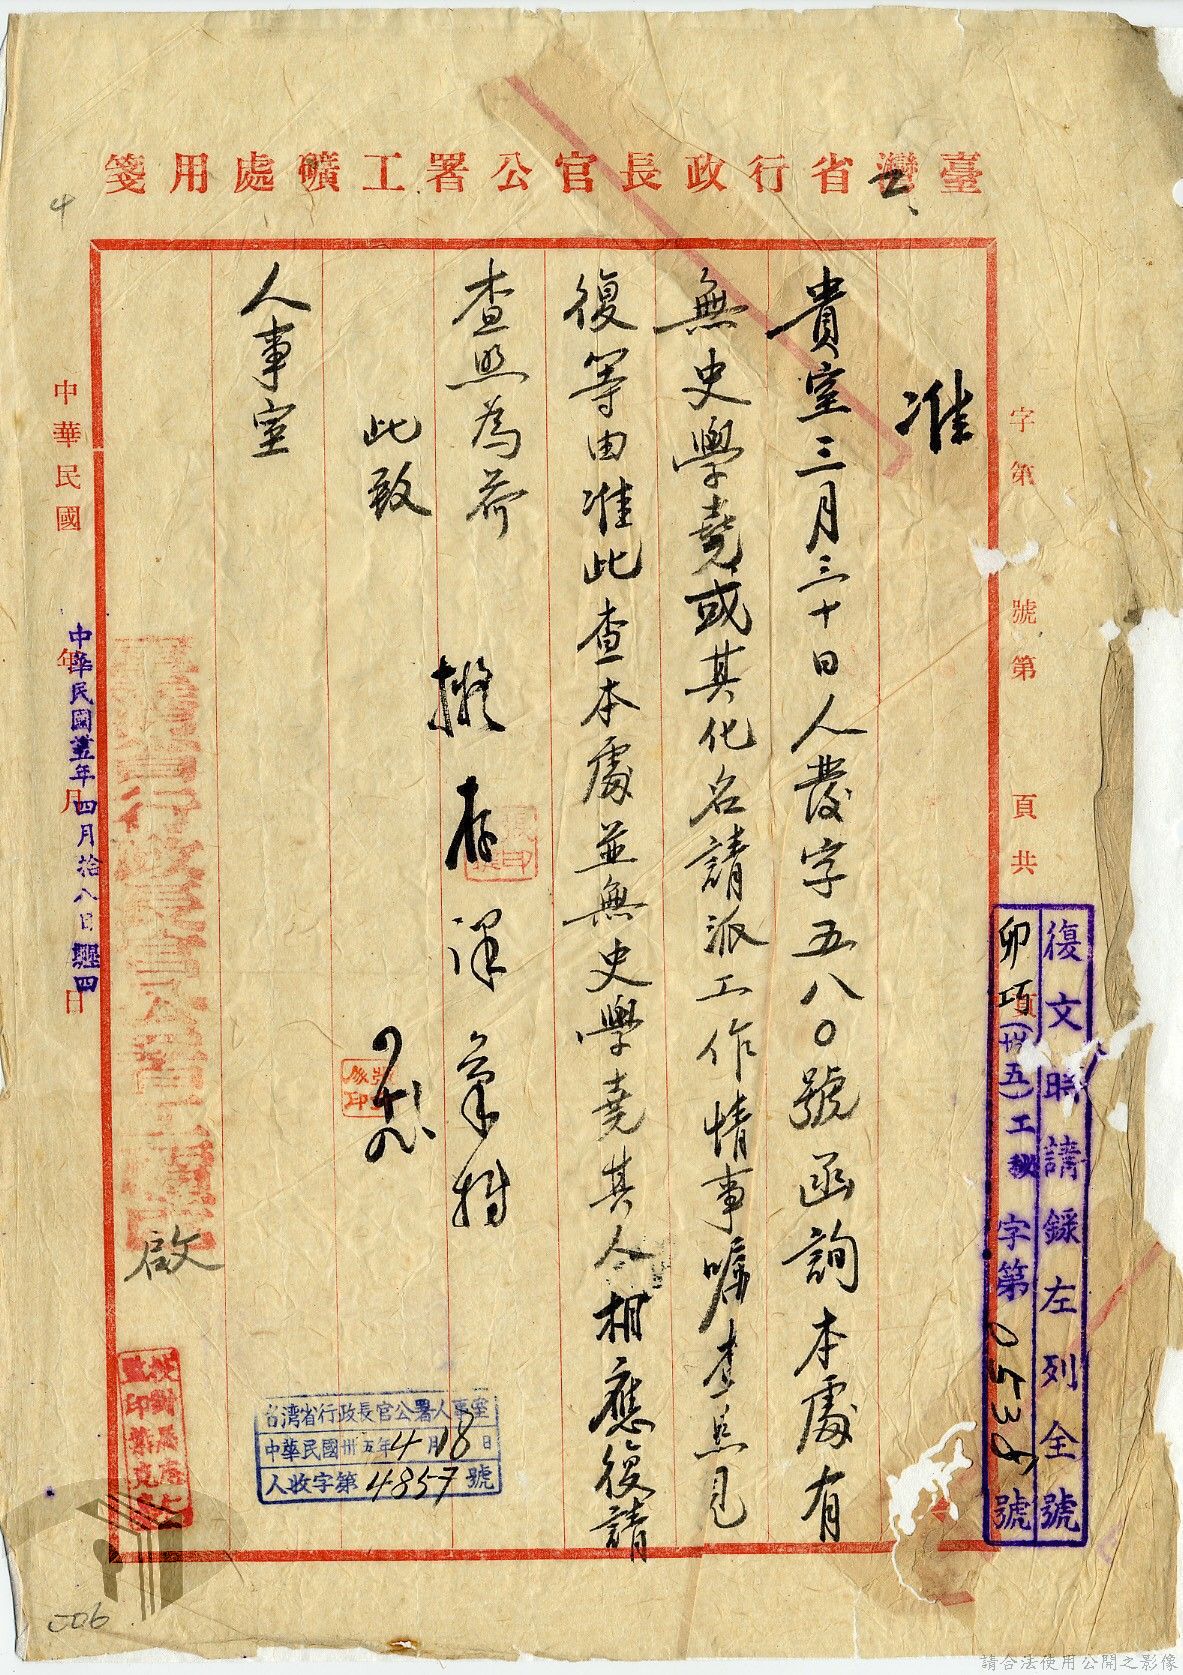 臺灣省行政長官公署工礦處用箋
字第 號第 頁共 頁
復文時請錄左列全號
卯巧(卅五)工秘 字第 0538 號
准
貴室三月三十日人發字五八〇號函詢本處有
無史學堯或其化名請派工作情事囑查照見
復等由准此查本處並無史學堯其人相應復請
查照為荷
此致
人事室
擬存
啟
台湾省行政長官公署人事室
中華民國卅五年4月18日
人收字第4857號
中華民國 年 月 日
中華民國卅五年四月拾八日
4
006
請合法使用公開之影像